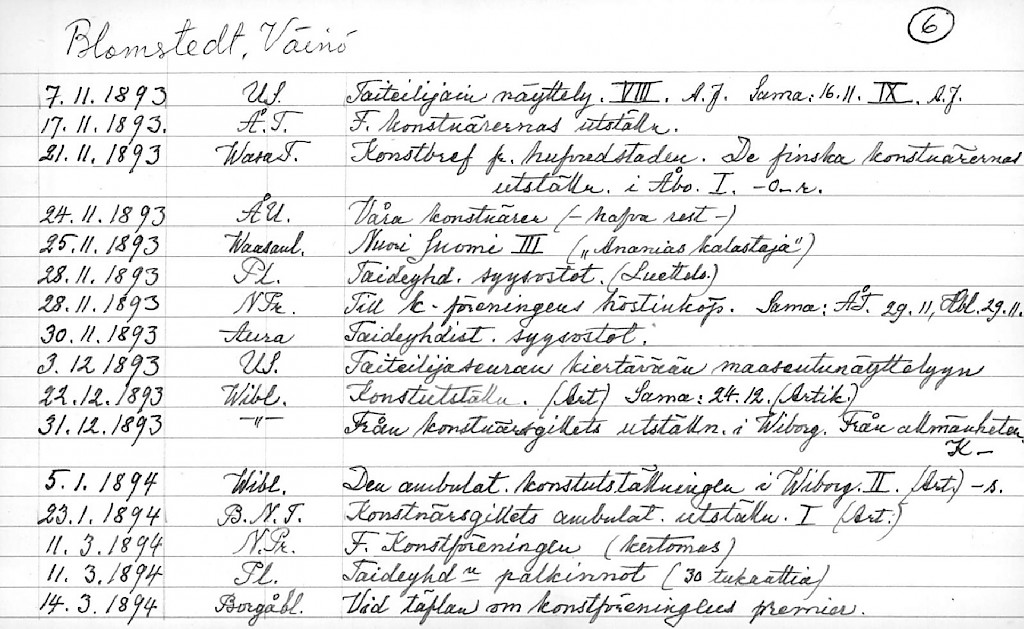 Blomstedt, Väinö 6
7.11.1893 U.S. Taiteilijain näyttely. VIII. A.J. Sama: 16.11. IX. A.J.
17.11.1893. Å.T. F. konstnärernas utställn.
21.11.1893 Wasa T. Konstbref fr. hufvudstaden. De finska konstnärernas
utställn. i Åbo. I. -O-r.
24.11.1893 ÅU. Våra konstnärer (- hafva rest -)
25.11.1893 Waasanl. Nuori Suomi III („Ananias kalastaja")
28.11.1893 Pl. Taideyhd. syysostot. (Luettelo.)
28.11.1893 N.Pr. Till k-föreningens höstinköp. Sama: ÅT. 29.11, Hbl. 29.11.
30.11.1893 Aura Taideyhdist. syysostot.
3.12 1893 U.S. Taiteilijaseuran kiertävään maaseutunäyttelyyn
22.12.1893 Wibl. Konstutställn. (Art) Sama: 24.12. (Artik.)
31.12.1893 -"- Från konstnärsgillets utställn. i Wiborg. Från allmänheten.
K-
5.1.1894 Wibl. Den ambulat. konstutställningen i Wiborg. II. (Art.) -s.
23.1.1894 B.N.T. Konstnärsgillets ambulat. utställn. I (Art.)
11.3.1894 N.Pr. F. Konstföreningen (kertomus)
11.3.1894 Pl. Taideyhd:n palkinnot (30 dukaattia)
14.3.1894 Borgåbl. Vid täflan om konstföreningens premier.